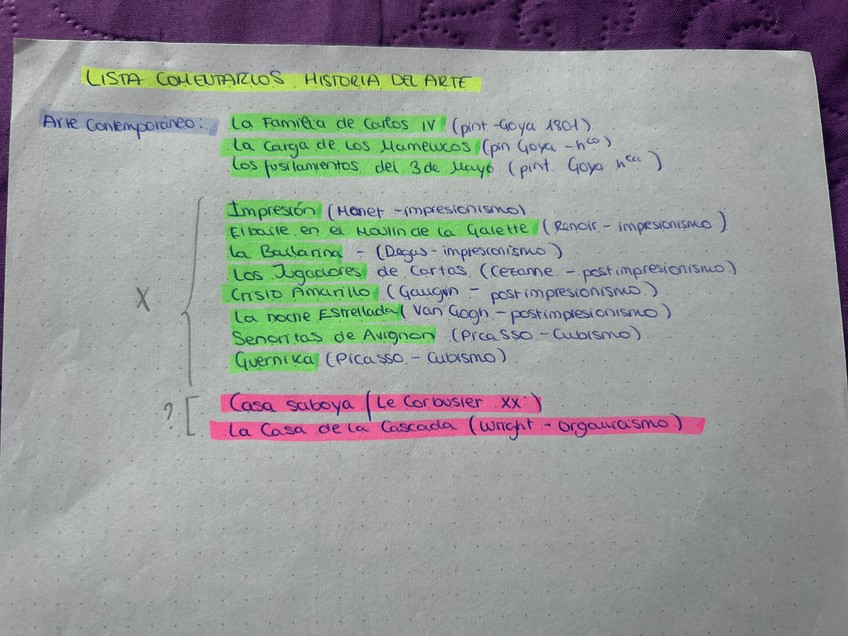 LISTA COMENTARIOS HISTORIA DEL ARTE
Arte Contemporáneo: La Familia de Carlos IV (pint - Goya 1801)
La Carga de los Mamelucos (pin Goya - nco)
Los fusilamientos del 3 de Mayo (pint. Goya nca)
Impresión (Monet - impresionismo)
El baile en el Moulin de la Galette (Renoir - impresionismo)
La Bailarina - (Degas - impresionismo)
Los Jugadores de Cartas (Cezanne - postimpresionismo)
X Cristo Amarillo (Gaugin - postimpresionismo)
La noche Estrellada (Van Gogh - postimpresionismo)
Señoritas de Avignon (Picasso - Cubismo)
Guernika (Picasso - Cubismo)
? Casa saboya (Le Corbusier XX)
La Casa de la Cascada (Wright - organicismo)